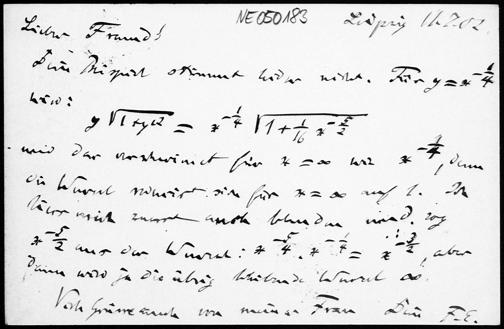 NE050183
Leipzig 16.7.02.
Lieber Freund!
Dein Beispiel stimmt leider nicht. Für y = x^{-1/4}
wird:
y √(1+y'^2) = x^{-1/4} √(1 + 1/16 x^{-5/2})
und das verschwindet für x = ∞ wie x^{-1/4}, denn
die Wurzel für x = ∞ auf 1. Ich
liess mich zuerst auch blenden und zog
x^{-5/2} aus der Wurzel: x^{-5/4} · x^{-1/4} = x^{-3/2}, aber
dann wird ja die übrig bleibende Wurzel ∞.
Viele Grüsse auch von meiner Frau Dein F.E.